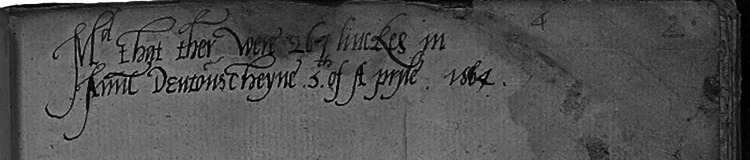 Md that ther were 267 linckes in
Anne Dentons cheyne .5. of Apryle . 1564 .